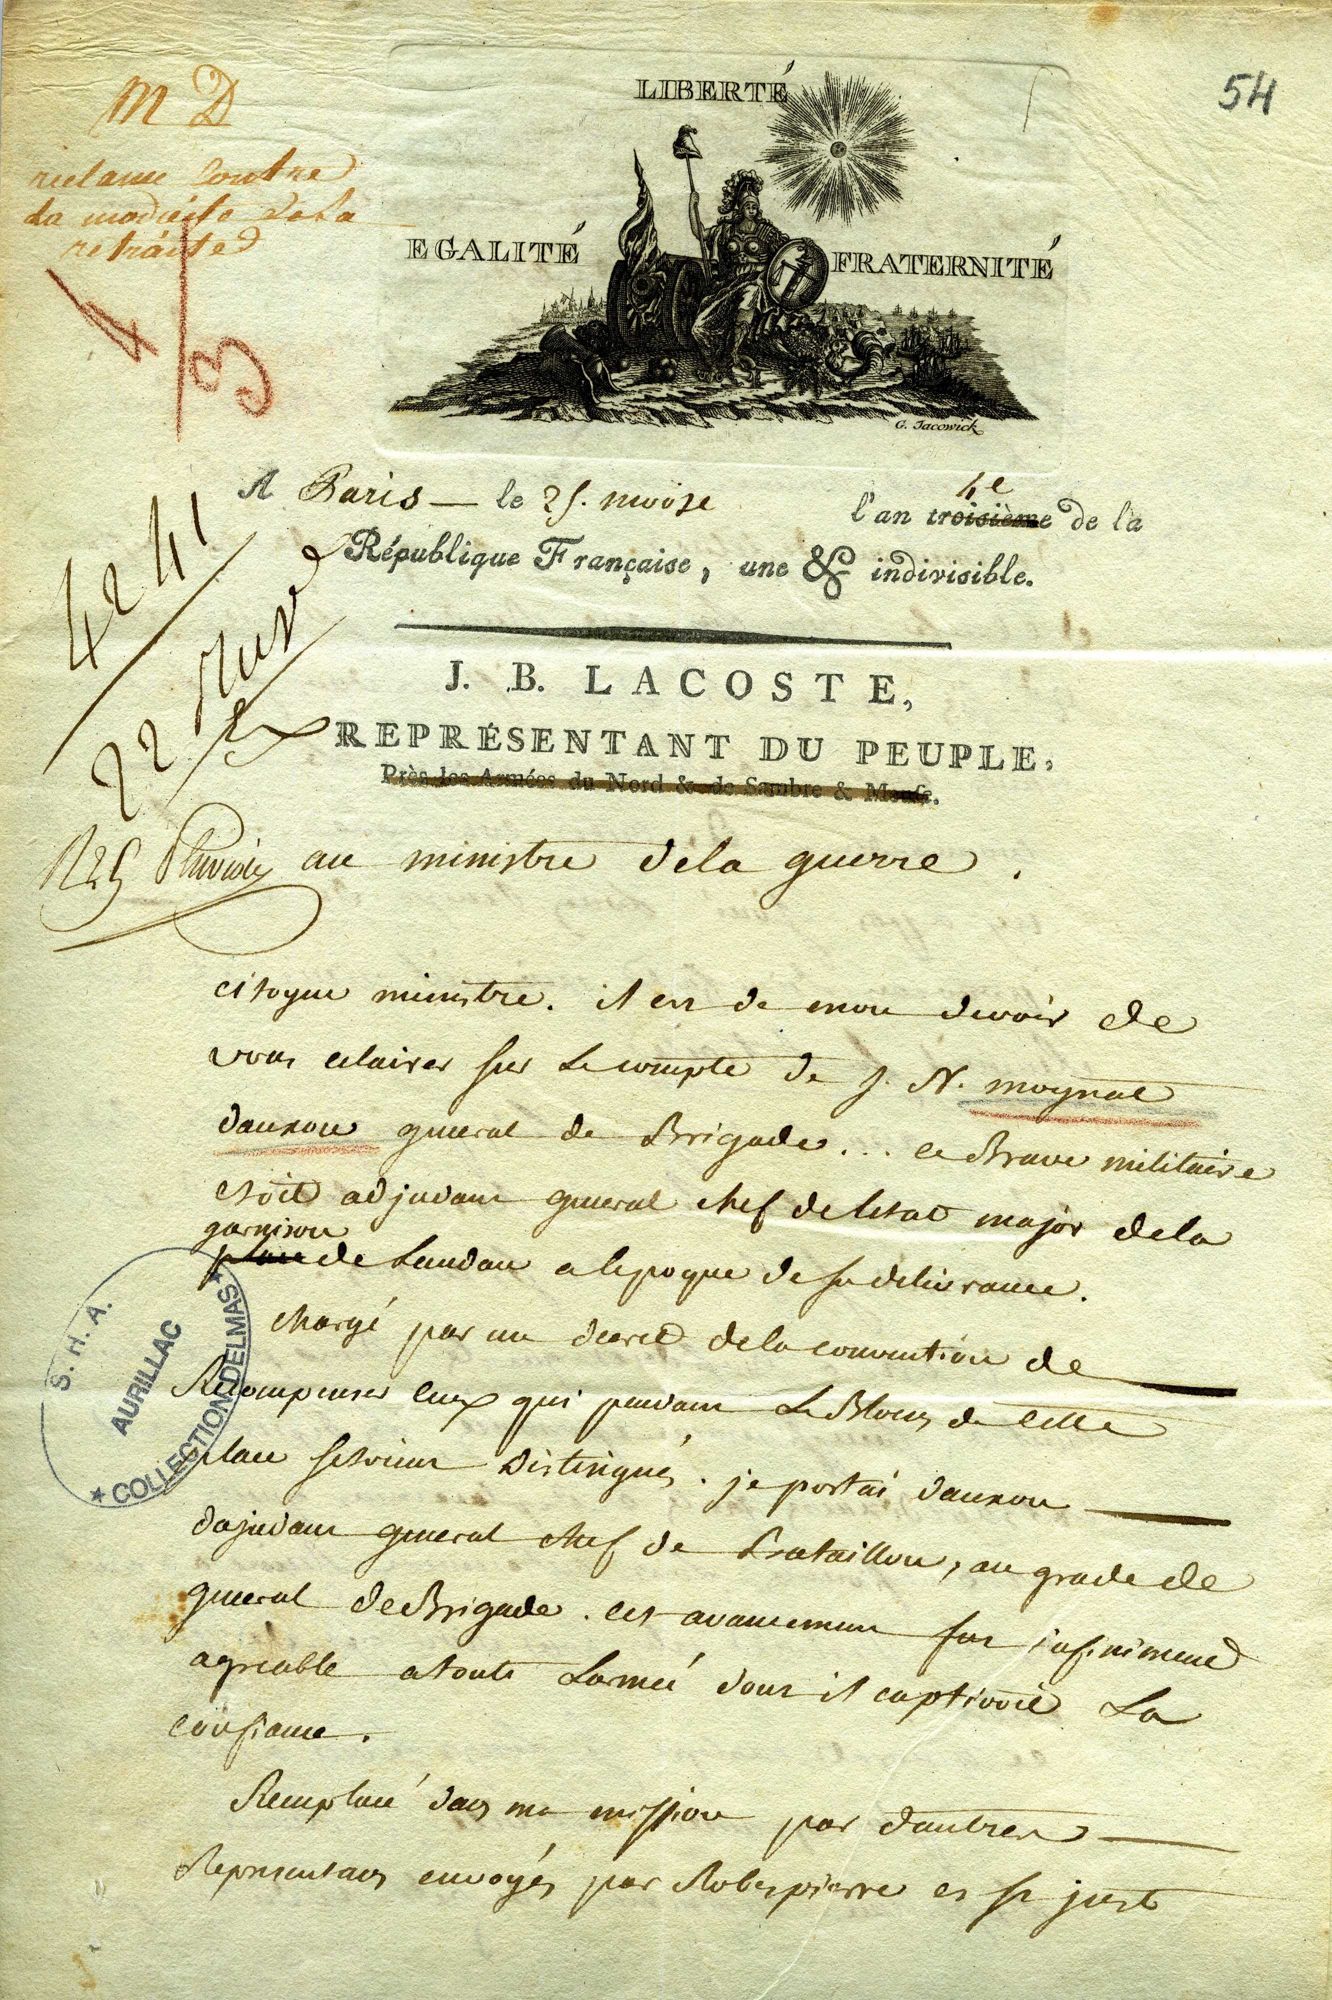 54
M D
reclame contre
la modicité de la
retraite
4/3
LIBERTÉ
EGALITÉ
FRATERNITÉ
G. Jacowick
A Paris — le 25. nivôse l'an troisième 4e de la
République Française, une & indivisible.
4241
22 Nivôse
R 25 Pluviose
J. B. LACOSTE,
REPRÉSENTANT DU PEUPLE,
Près les Armées du Nord & de Sambre & Meuse.
au ministre dela guerre.
citoyen ministre. il est de mon devoir de
vous eclairer sur le compte de J. N. moynat
dauxon general de Brigade... ce Brave militaire
etoit adjudant general chef deletat major dela
garnison
place de Landau a lepoque de sa delivrance.
chargé par un decret dela convention de
Recompenser ceux qui pendant le Blocus de cette
place setoient distingués. je portai dauxon
dajudant general chef de Bataillon, au grade de
general de Brigade. cet avancement fut infiniment
agreable a toute Larmée dont il captivoit La
confiance.
Remplacé dans ma mission par dautres
Representans envoyés par Robespierre et St just
S. H. A.
AURILLAC
★ COLLECTION DELMAS ★